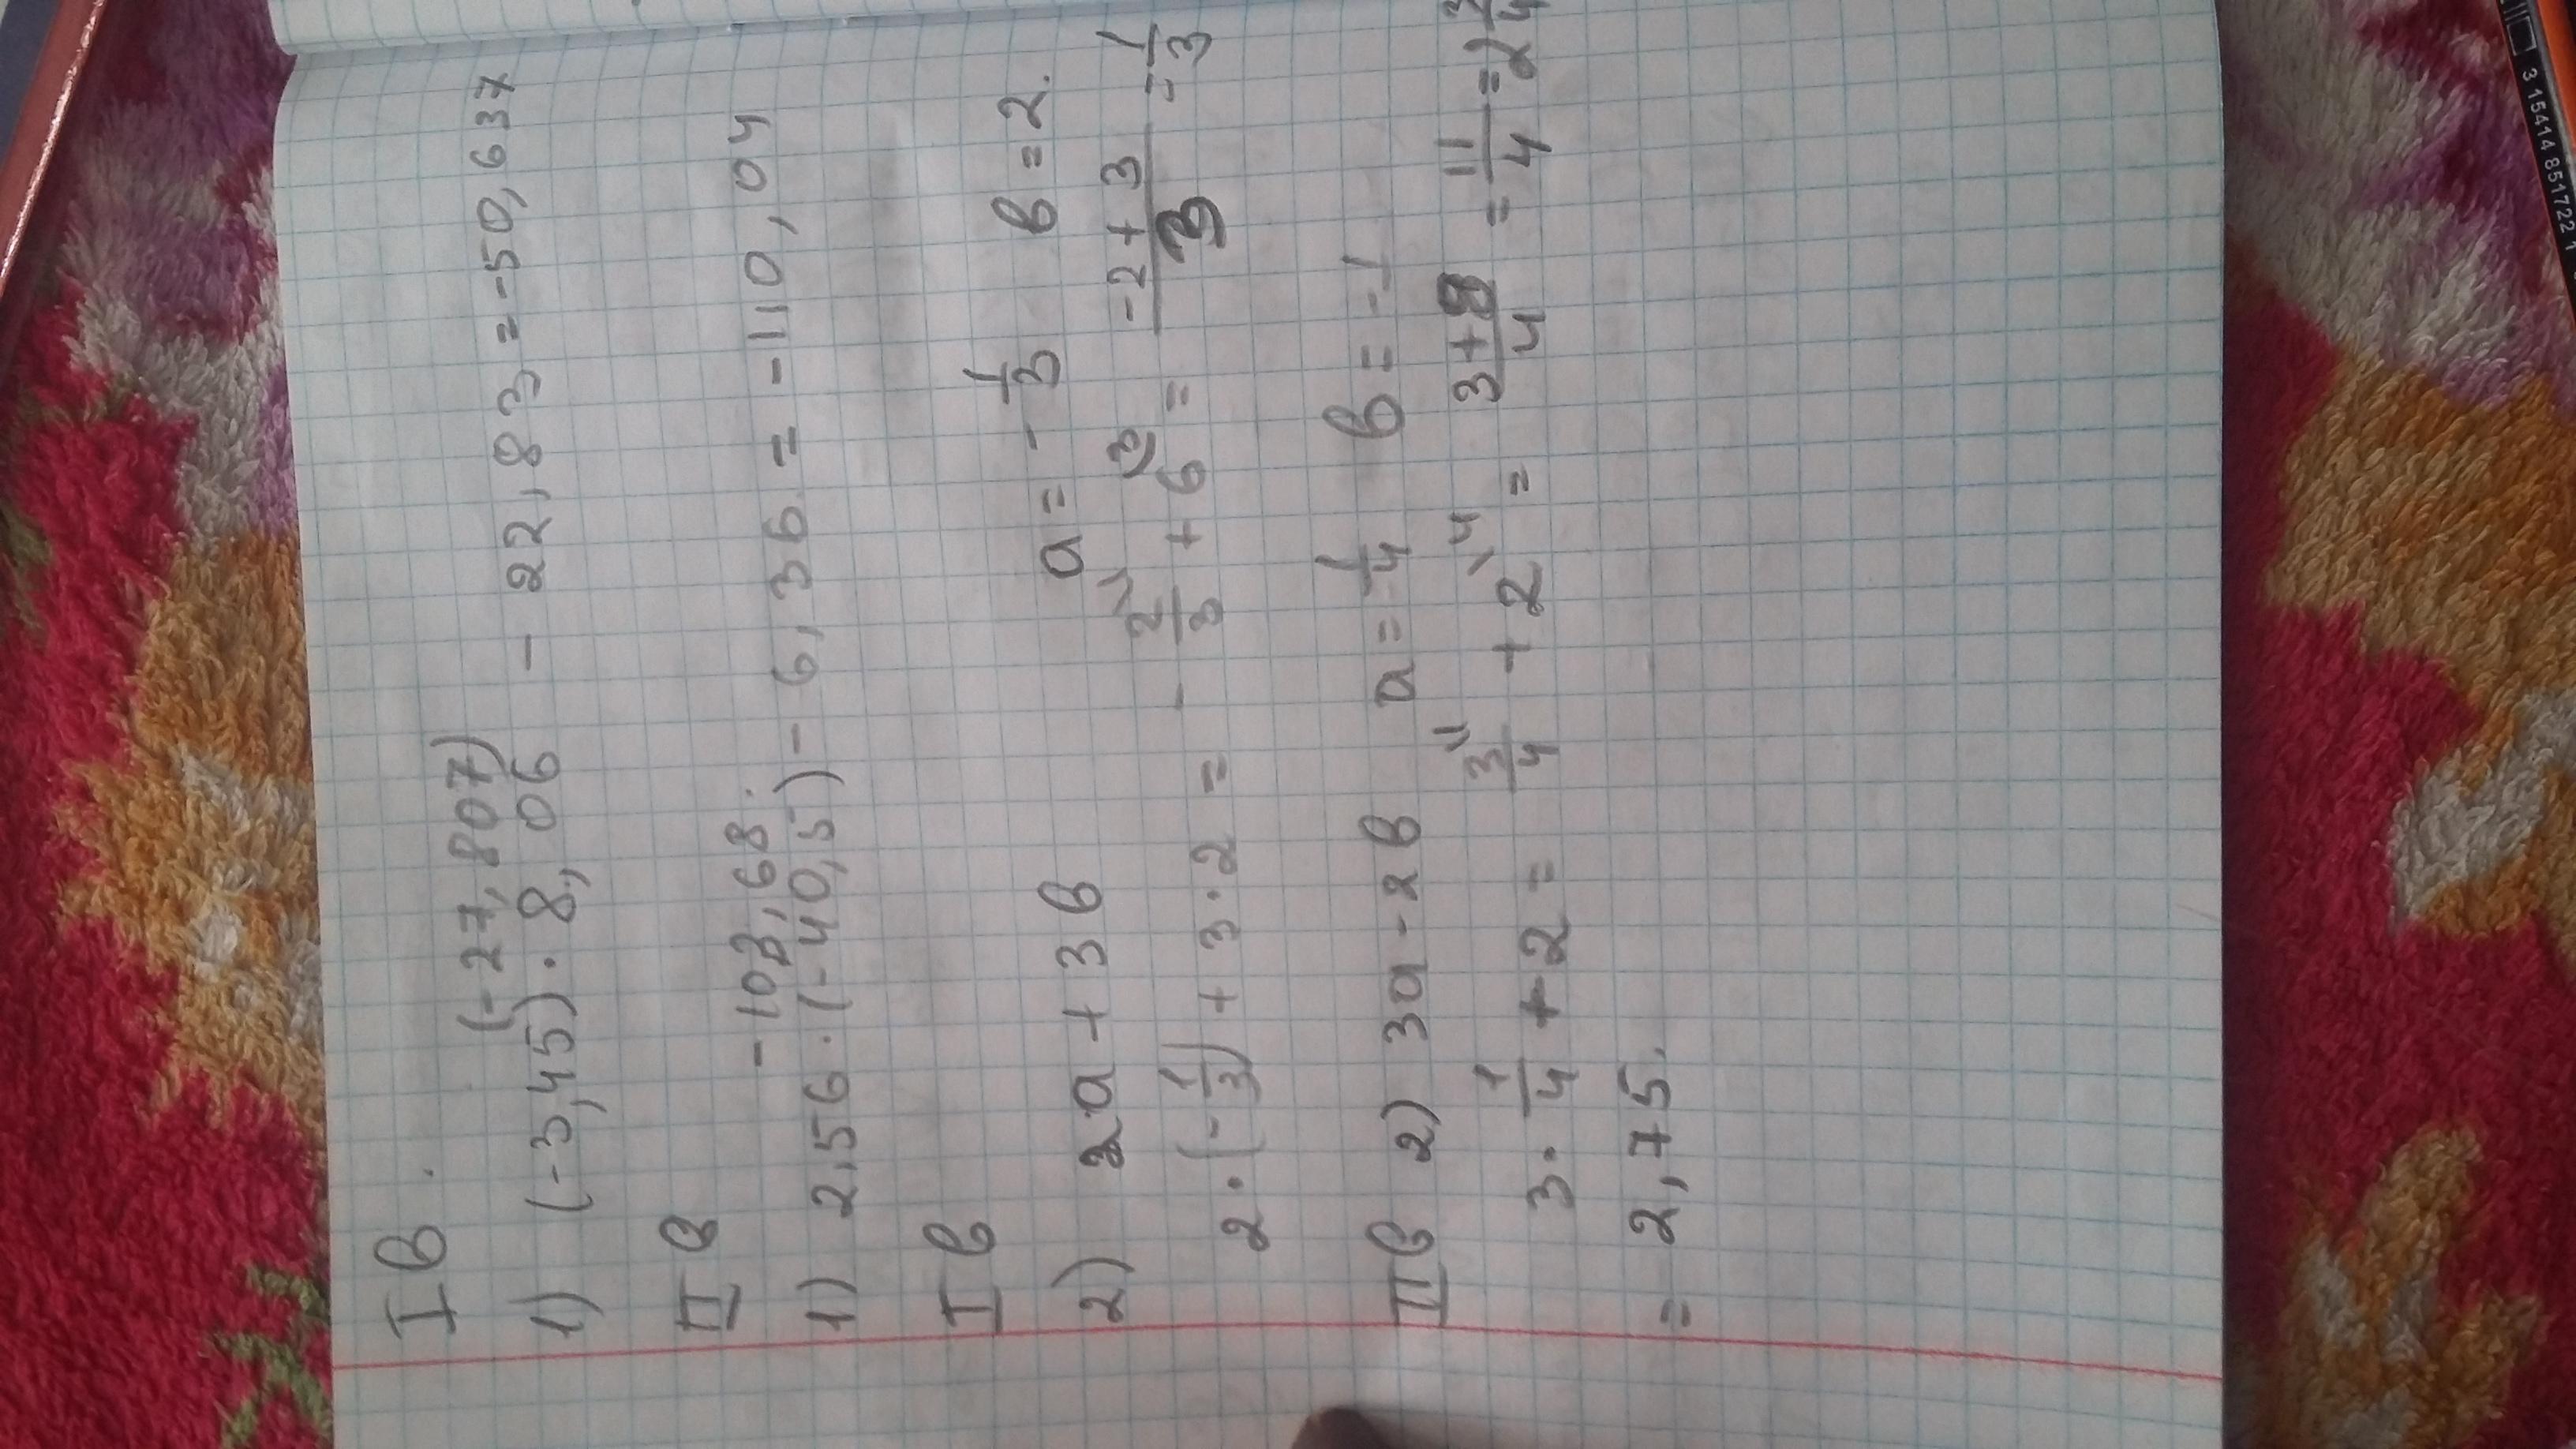 I в.
(-27,807)
1) (-3,45) · 8,06 - 22,83 = -50,637
II в
-103,68.
1) 2,56 · (-40,5) - 6,36 = -110,04
I в
2) 2a + 3в a = - 1/3 в = 2.
2 · (-1/3) + 3 · 2 = - 2/3 \1 + 6 \3 = -2 + 3/3 = 1/3
II в 2) 3a - 2в a = 1/4 в = -1
3 · 1/4 + 2 = 3/4 \1 + 2 \4 = 3+8/4 = 11/4 = 2 3/4
= 2,75.
3 15414 851722 1